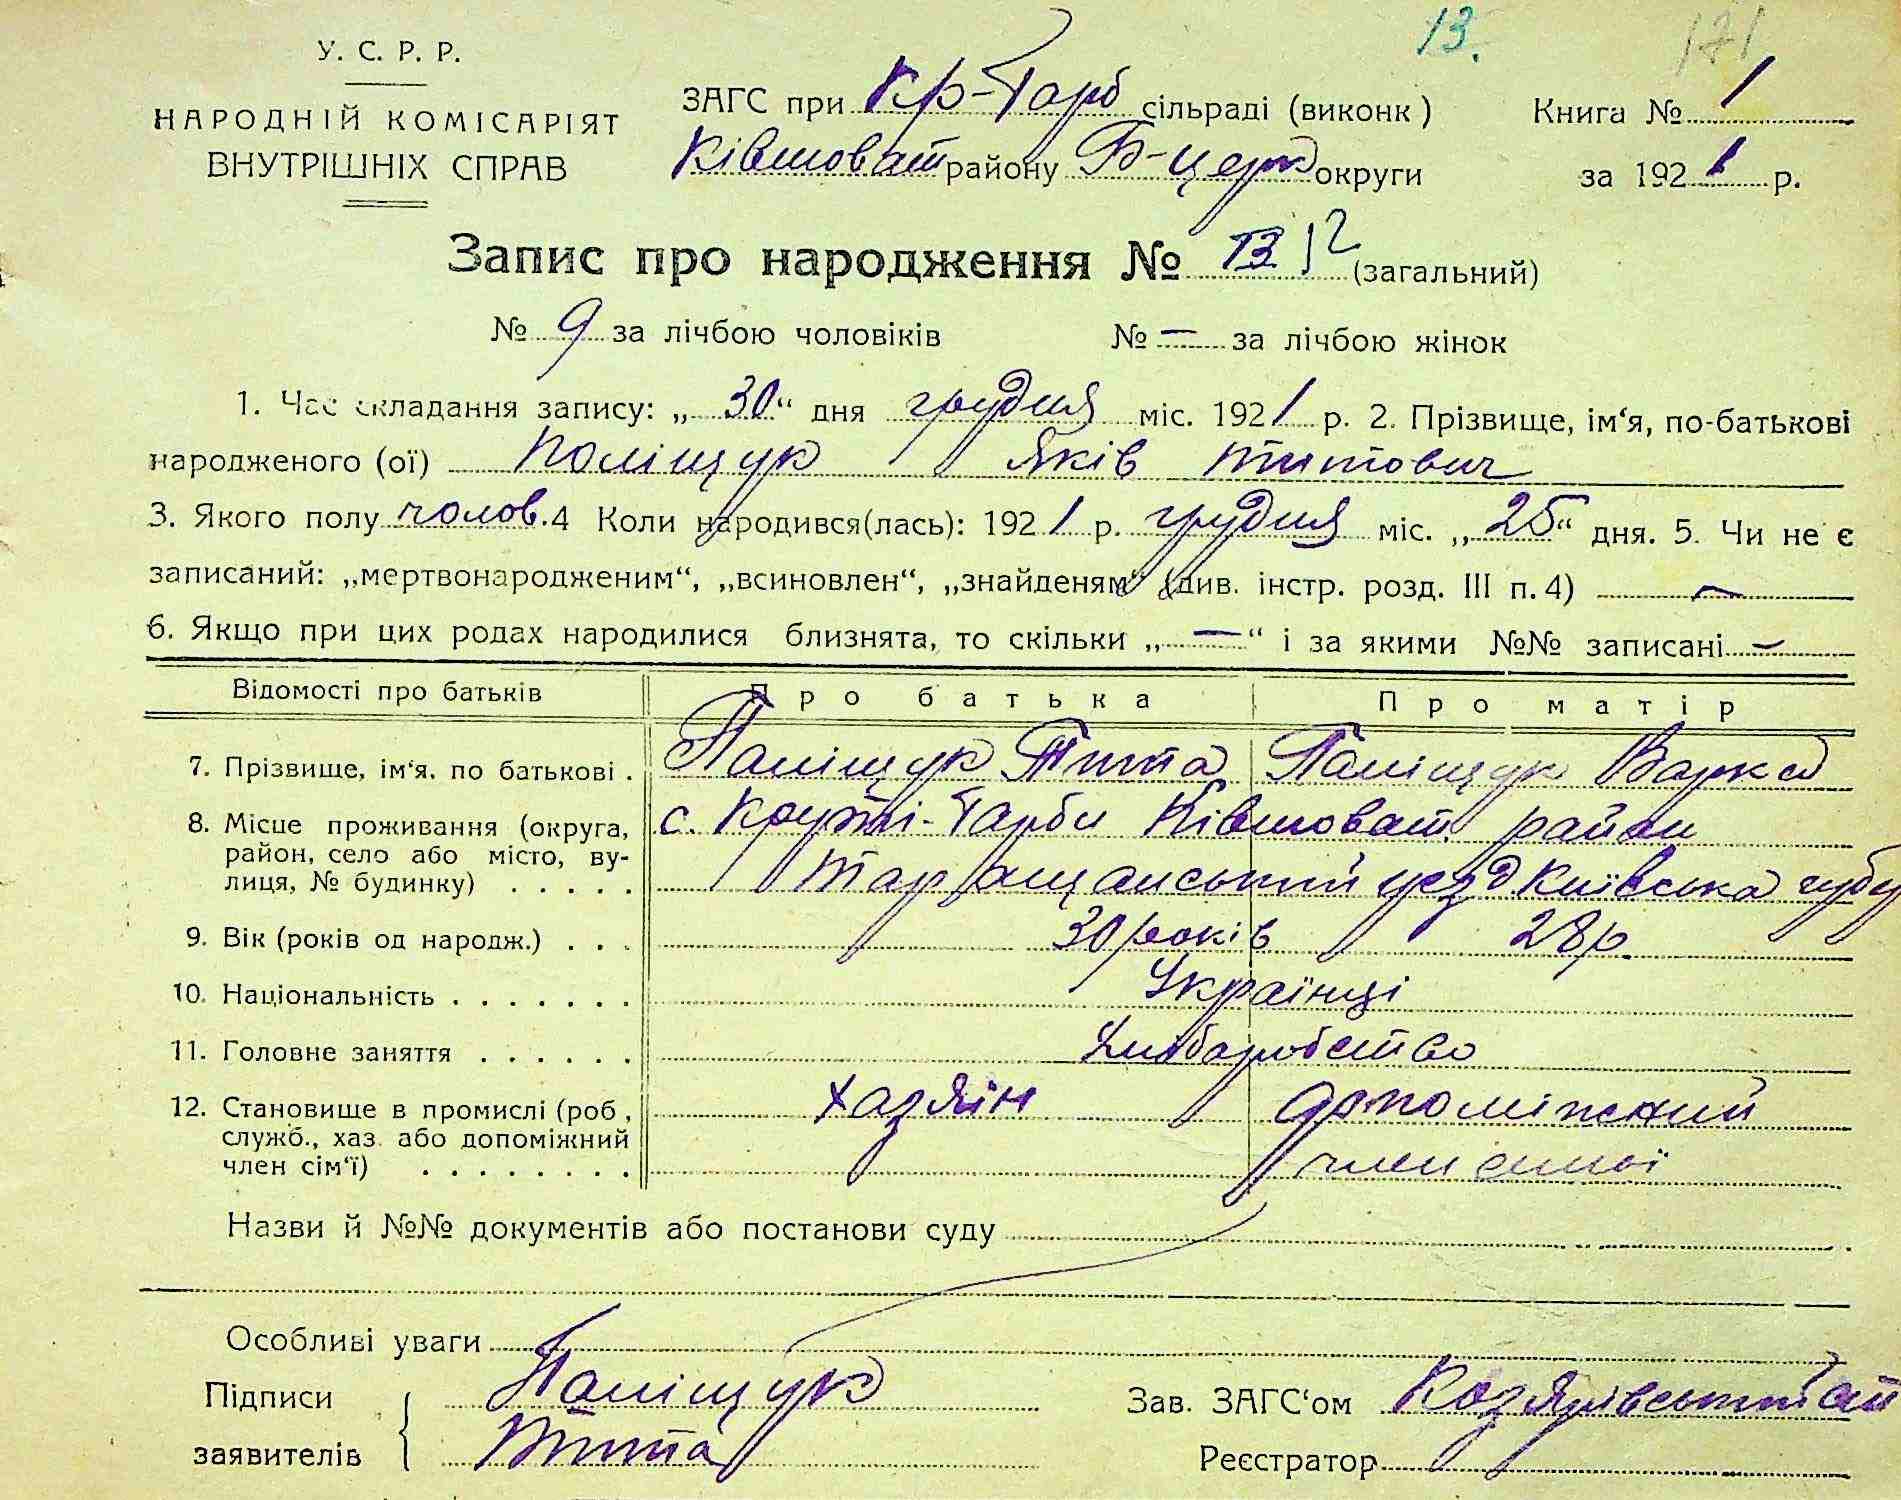 13. 171
У. С. Р. Р.
НАРОДНІЙ КОМІСАРІЯТ
ВНУТРІШНІХ СПРАВ
ЗАГС при Кр-Гарб сільраді (виконк)
Ківшоват району Б-церк округи
Книга № 1
за 1921 р.
Запис про народження № 13 (загальний)
№ 9 за лічбою чоловіків № — за лічбою жінок
1. Час складання запису: „30“ дня грудня міс. 1921 р. 2. Прізвище, ім‘я, по-батькові
народженого (ої) Поліщук Яків Титович
3. Якого полу чолов. 4 Коли народився(лась): 1921 р. грудня міс. „25“ дня. 5. Чи не є
записаний: „мертвонародженим“, „всиновлен“, „знайденям“ (див. інстр. розд. III п. 4) —
6. Якщо при цих родах народилися близнята, то скільки „—“ і за якими №№ записані —
Відомості про батьків Про батька Про матір
7. Прізвище, ім‘я, по батькові . Паліщук Тита Паліщук Варка
8. Місце проживання (округа, с. Круті-Гарби Ківшоват район
район, село або місто, ву-
лиця, № будинку) . . . . . Таращанський уезд Київська губ
9. Вік (років од народж.) . . . 30 років 28 р.
10. Національність . . . . . . . Українці
11. Головне заняття . . . . . . Хліборобство
12. Становище в промислі (роб, хазяїн допоміжний
служб., хаз. або допоміжний
член сім‘ї) . . . . . . . . член сімї
Назви й №№ документів або постанови суду
Особливі уваги
Підписи Паліщук
заявителів Тита
Зав. ЗАГС‘ом
Реєстратор